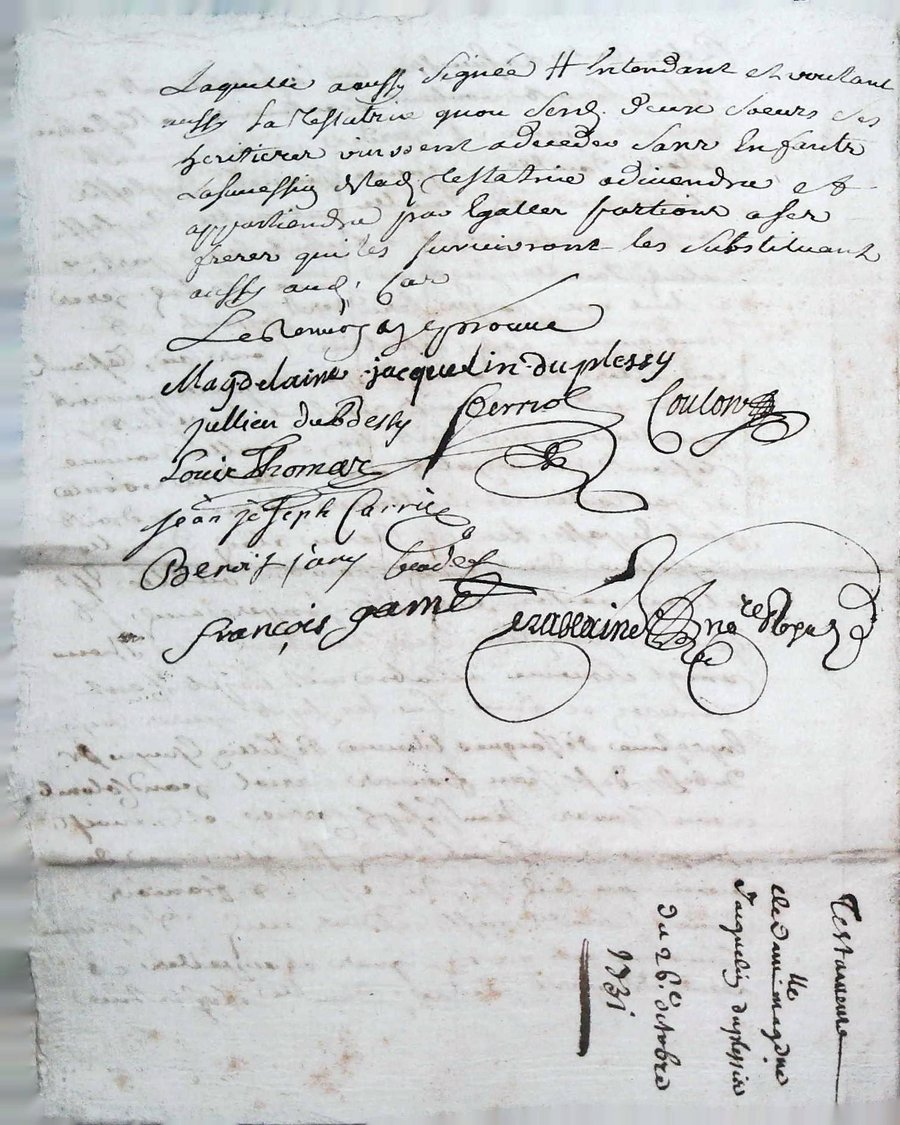 Laquelle a aussy signée # Entendant et voulant
aussy La Testatrice quou deux soeurs ses
heritieres vinssent adeceder sans Enfants
Lasuccession de lad. Testatrice adviendra et
appartiendra par Egalles portions a ses
freres qui les surviveront les substituant
aussy aud. Cas
Le Renvoy approuvé
Magdelaine jacquelin duplessy
jullien duBessy Perriol Coulon
Louis Thomas
jean joseph Carrie
Benoist jany
françois gamet
Ravaine no.re Royal
Testament
de damlle magdne
Jacquelin duplessis
du 26.e octobre
1731